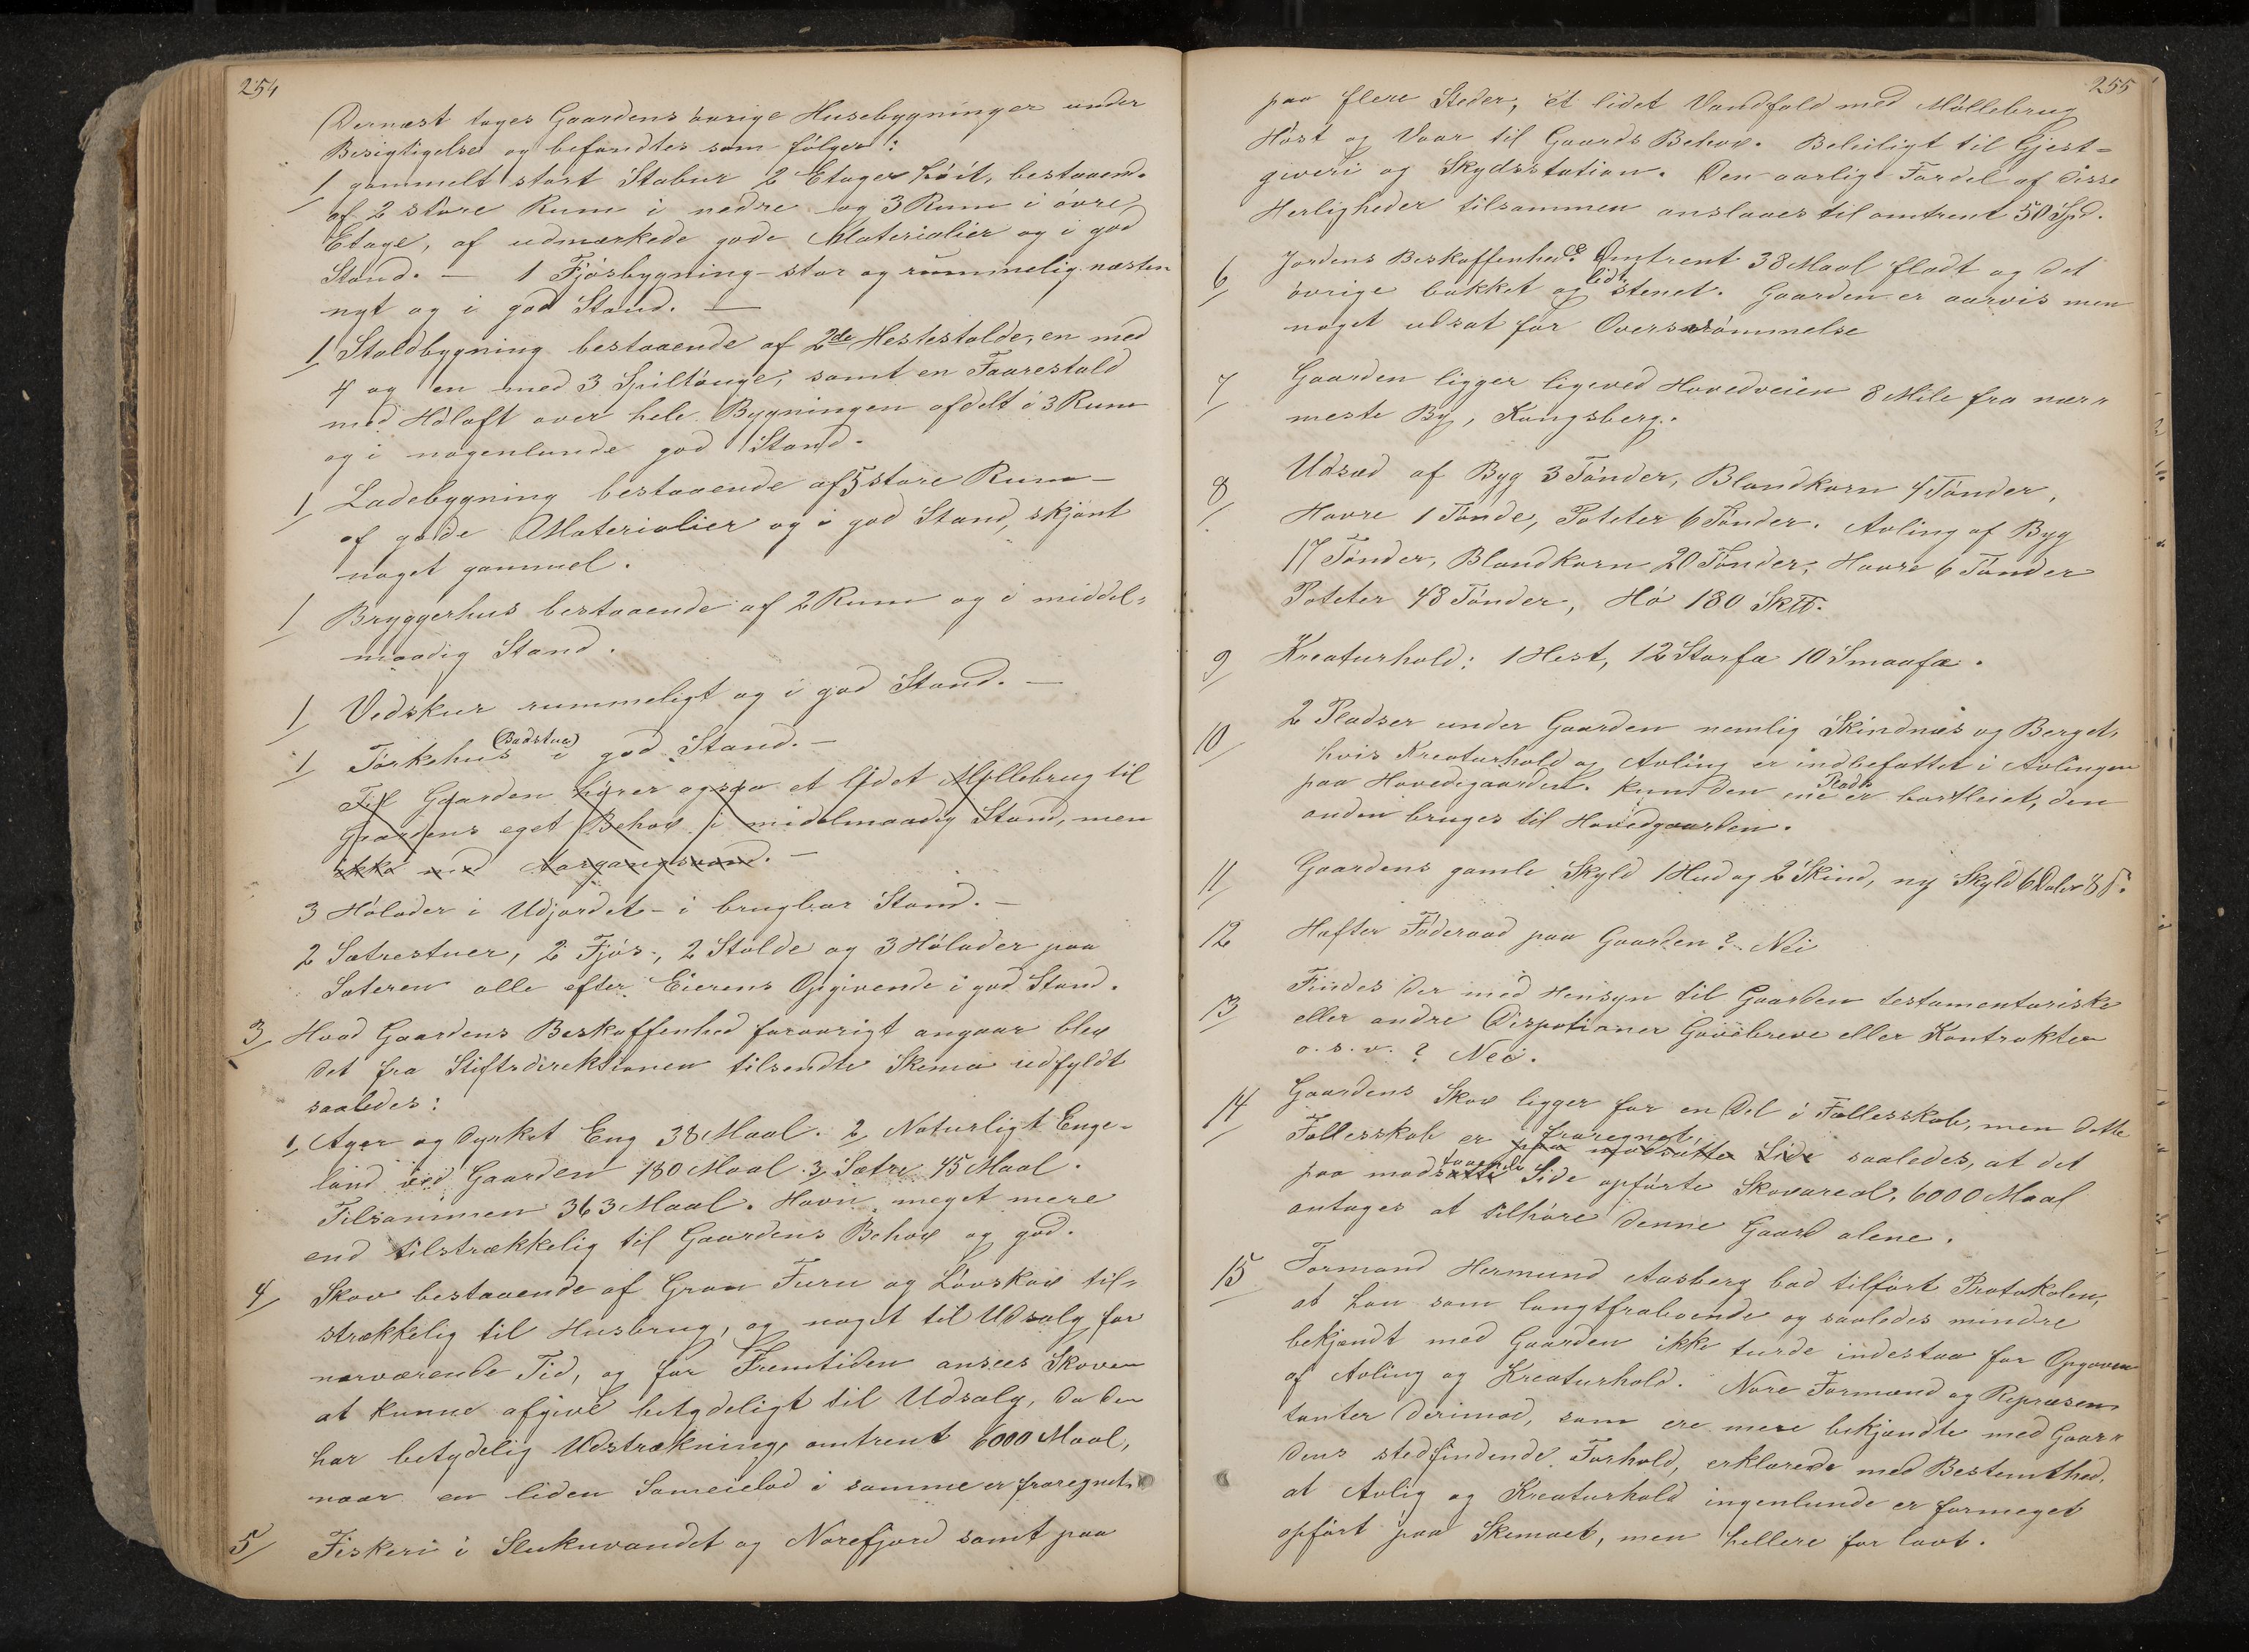 254
Dernæst toges Gaardens øvrige Husebygninger under
Besigtigelse og befandtes som følger:
1 gammelt stort Stabur 2 Etager høit, bestaaend.
af 2 store Rum i nedre og 3 Rum i øvre
Etage, af udmærkede gode Materialier og i god
Stand. — 1 Fjøsbygning - stor og rummelig næsten
nyt og i god Stand. —
1 Staldbygning bestaaende af 2de Hestestalde, en med
4 og en med 3 Spiltouge, samt en Faarestald
med Høloft over hele Bygningen afdelt i 3 Rum
og i nogenlunde god Stand.
1 Ladebygning bestaaende af 5 store Rum —
af gode Materialier og i god Stand, skjønt
noget gammel.
1 Bryggerhus bestaaende af 2 Rum og i middel=
maadig Stand.
1 Vedskur rummeligt og i god Stand. —
1 Tørkehus (Badstue) i god Stand. —
Til Gaarden hører ogsaa et lidet Møllebrug til
Gaardens eget Behov i midelmaadig Stand, men
ikke med Aargangsvand. —
3 Hølader i Udjordet - i brugbar Stand. —
2 Sætrestuer, 2 Fjøs, 2 Stalde og 3 Hølader paa
Sæteren alle efter Eierens Opgivende i god Stand.
3 Hvad Gaardens Beskaffenhed forøvrigt angaar blev
det fra Stiftsdirektionen tilsendte Skema udfyldt
saaledes:
1, Ager og dyrket Eng 38 Maal. 2, Naturligt Enge-
land ved Gaarden 180 Maal. 3, Sætre 45 Maal.
Tilsammen 363 Maal. Havn meget mere
end tilstrækkelig til Gaardens Behov og god.
4 Skov bestaaende af Gran Furu og Løvskov til=
strækkelig til Husbrug, og noget til Udsalg for
nærværende Tid, og for Fremtiden ansees Skoven
at kunne afgive betydeligt til Udsalg, da den
har betydelig Udstrækning, omtrent 6000 Maal,
naar en liden Sameielod i samme er fraregnet.
5 Fiskeri i Slukuvandet og Norefjord samt paa
255
paa flere Steder, et lidet Vandfald med Møllebrug
Høst og Vaar til Gaards Behov. Beleiligt til Gjest=
giveri og Skydsstation. Den aarlige Fordel af disse
Herligheder tilsammen anslaaes til omtrent 50 Spd.
6 Jordens Beskaffenhed? Omtrent 38 Maal fladt og det
øvrige bakket og lidt stenet. Gaarden er aarvis men
noget udsat for Oversvømmelse
7 Gaarden ligger ligeved Hovedveien 8 Mile fra nær=
meste By, Kongsberg.
8 Udsæd af Byg 3 Tønder, Blandkorn 4 Tønder,
Havre 1 Tønde, Poteter 6 Tønder. Avling af Byg
17 Tønder, Blandkorn 20 Tønder, Havre 6 Tønder
Poteter 48 Tønder, Hø 180 Sk℔.
9 Kreaturhold: 1 Hest, 12 Storfæ 10 Smaafæ.
10 2 Pladser under Gaarden nemlig Skindnæs og Berget,
hvis Kreaturhold og Avling er indbefattet i Avlingen
paa Hovedegaarden. Kun den ene Plads er bortleiet, den
anden bruges til Hovedgaarden.
11 Gaardens gamle Skyld 1 Hud og 2 Skind, ny Skyld 6 Daler 8 ß.
12 Hefter Føderaad paa Gaarden? Nei
13 Findes der med Hensyn til Gaarden testamentariske
eller andre Dispotioner Gavebreve eller Kontrakter
o. s. v.? Nei.
14 Gaardens Skov ligger for en Del i Fællesskab, men dette
Fællesskab er fraregnet, paa modsatte Side saaledes, at det
paa modstaaende Side opførte Skovareal, 6000 Maal
antages at tilhøre denne Gaard alene.
15 Formand Hermund Aasberg bad tilført Protokolen,
at han som langtfraboende og saaledes mindre
bekjendt med Gaarden ikke turde indestaa for Opgaven
af Avling og Kreaturhold. Nore Formænd og Repræsen
tanter derimod, som ere mere bekjendte med Gaar=
dens stedfindende Forhold, erklærede med Bestemthed,
at Avlig og Kreaturhold ingenlunde er formeget
opført paa Skemaet, men hellere for lavt.